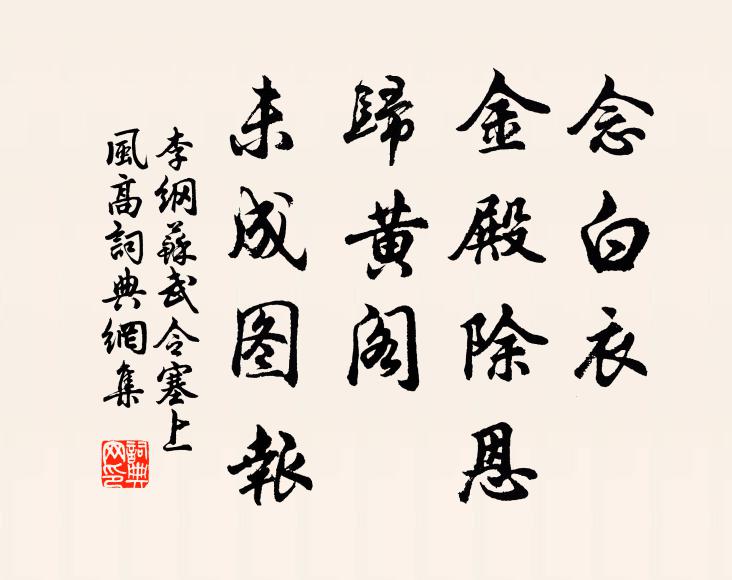 念白衣
金殿除恩
歸黄阁
未成图報
李纲蘇武令塞上
風高詞典網集
詞典
网印